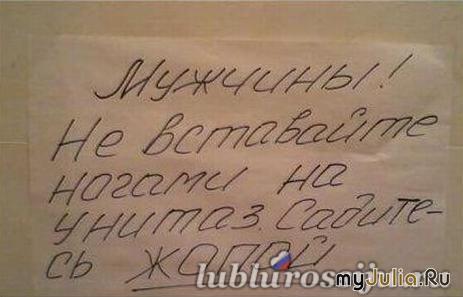 Мужчины!
Не вставайте
ногами на
унитаз. Садите-
сь жопой
myJulia.Ru